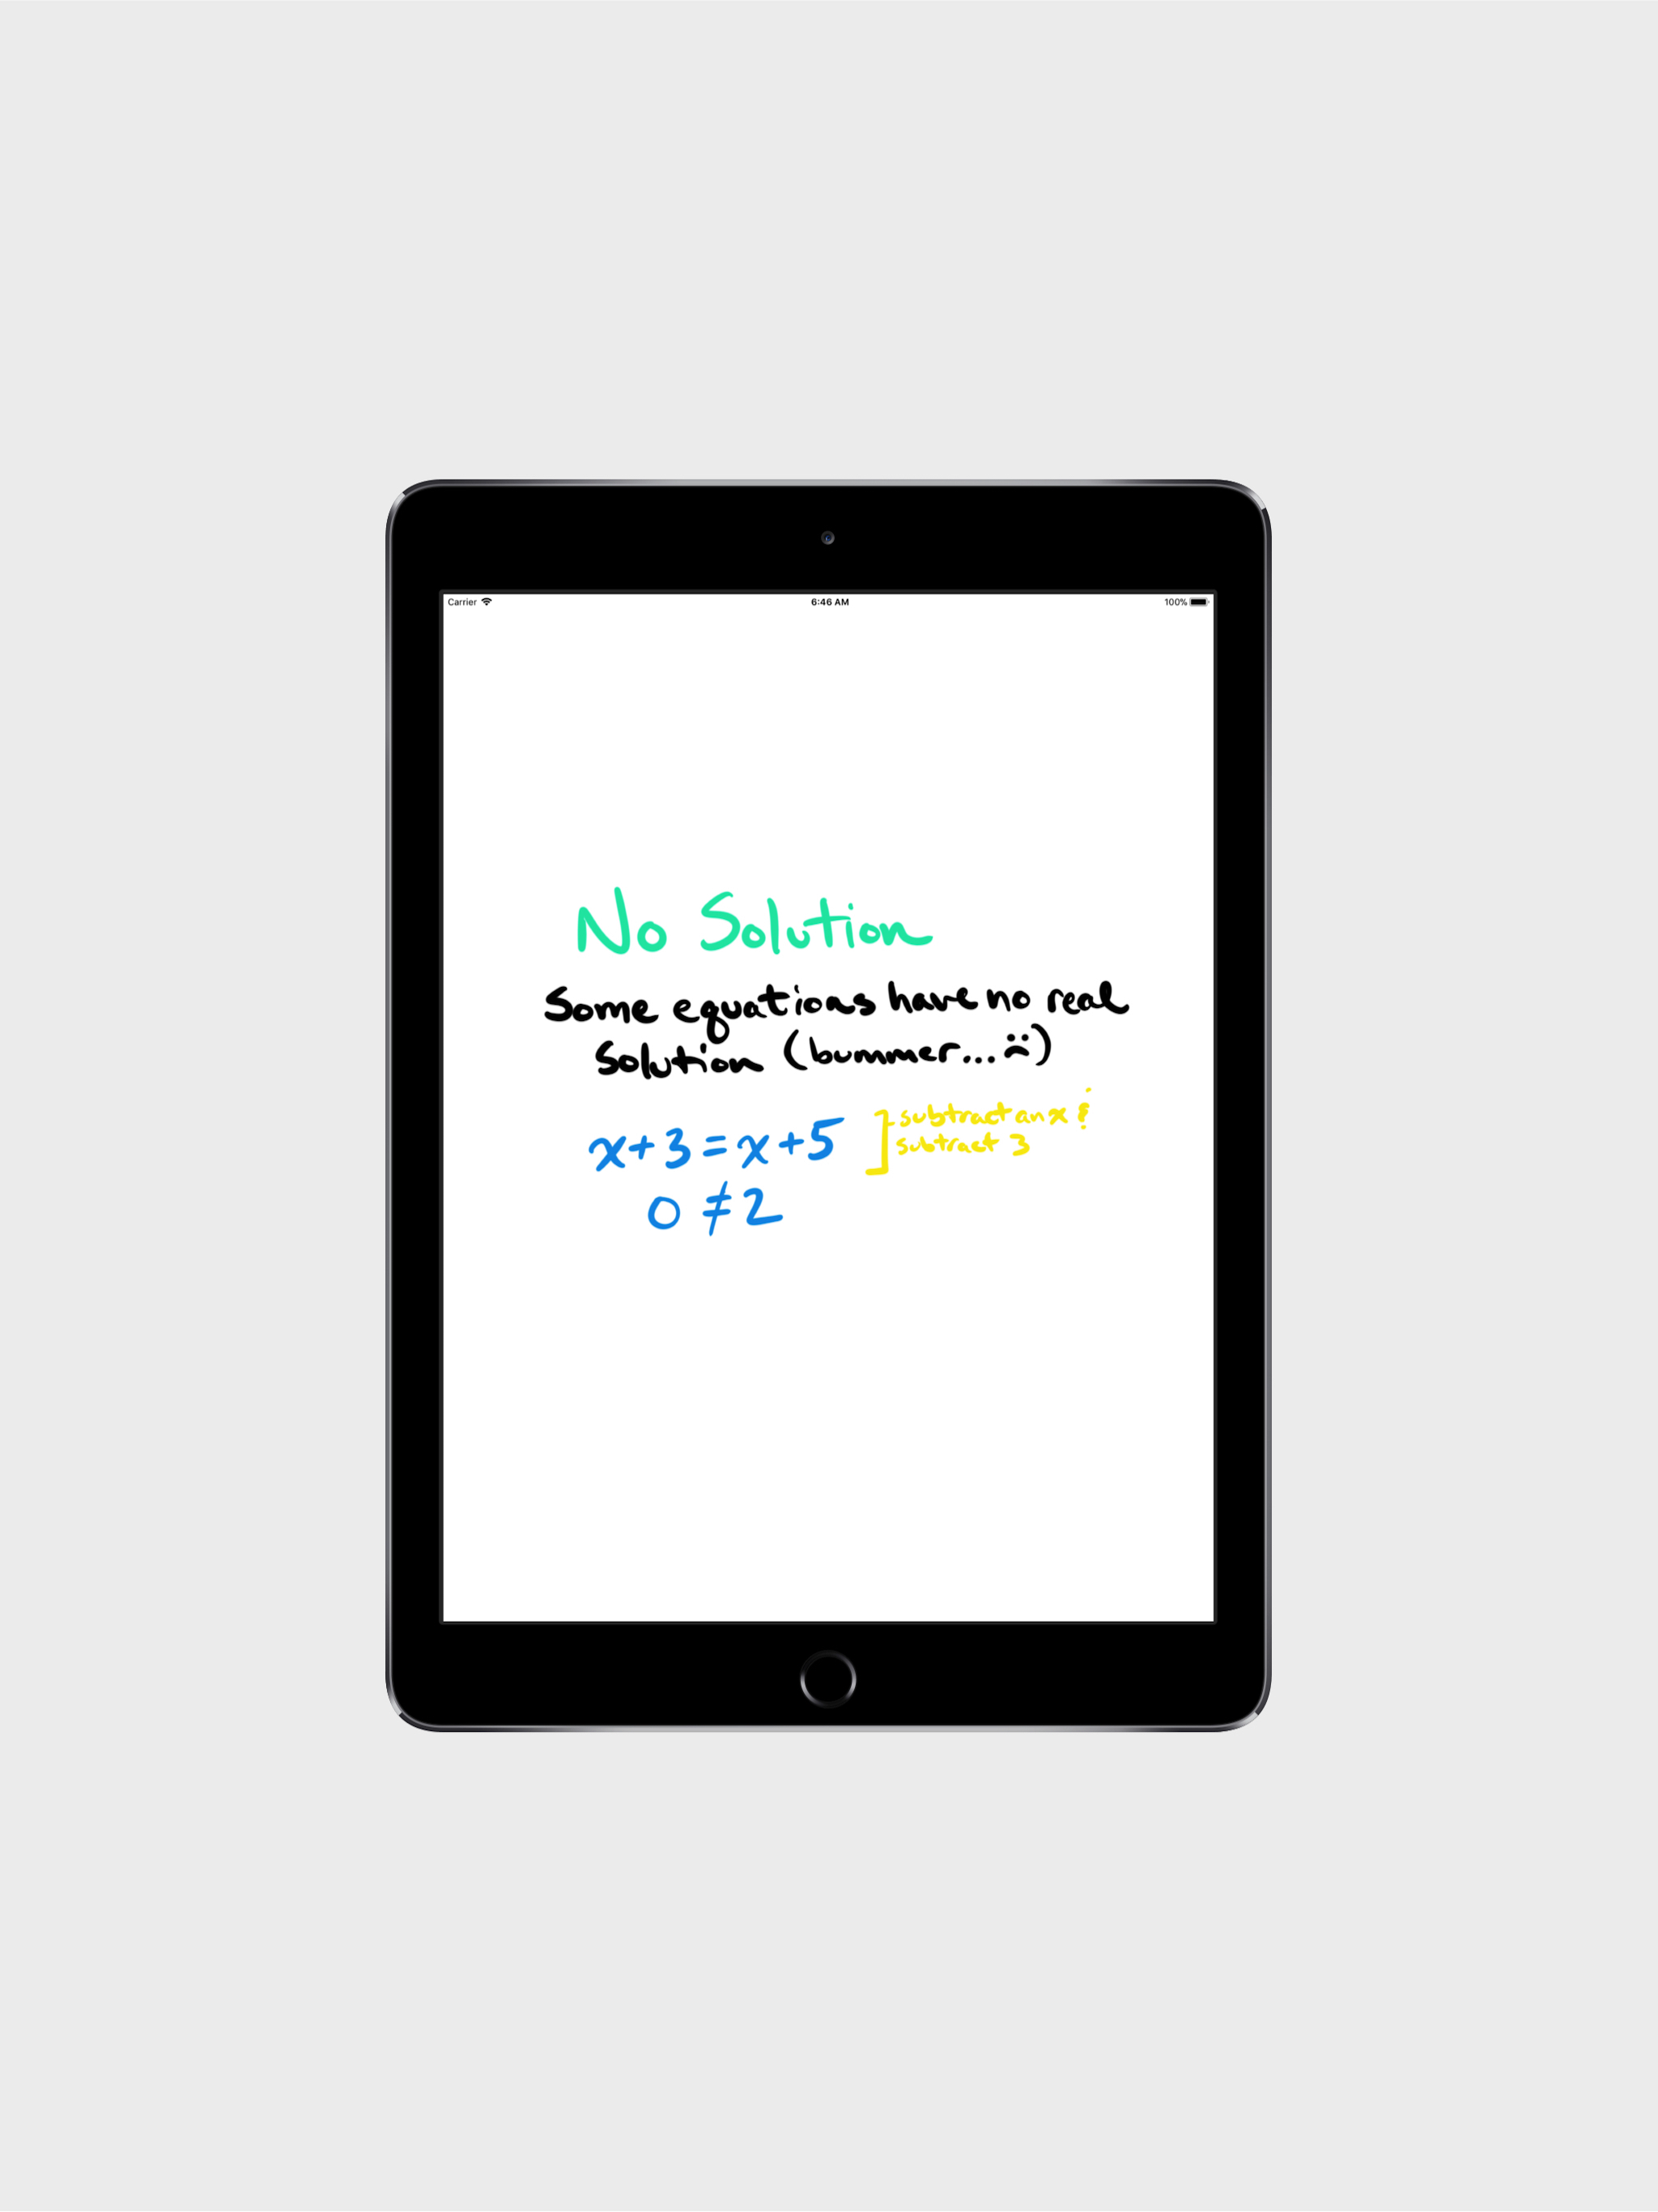 Carrier 6:46 AM 100%
No Solution
Some equations have no real
solution (bummer...☹)
x+3=x+5
subtract an x &
subtract 3
0≠2